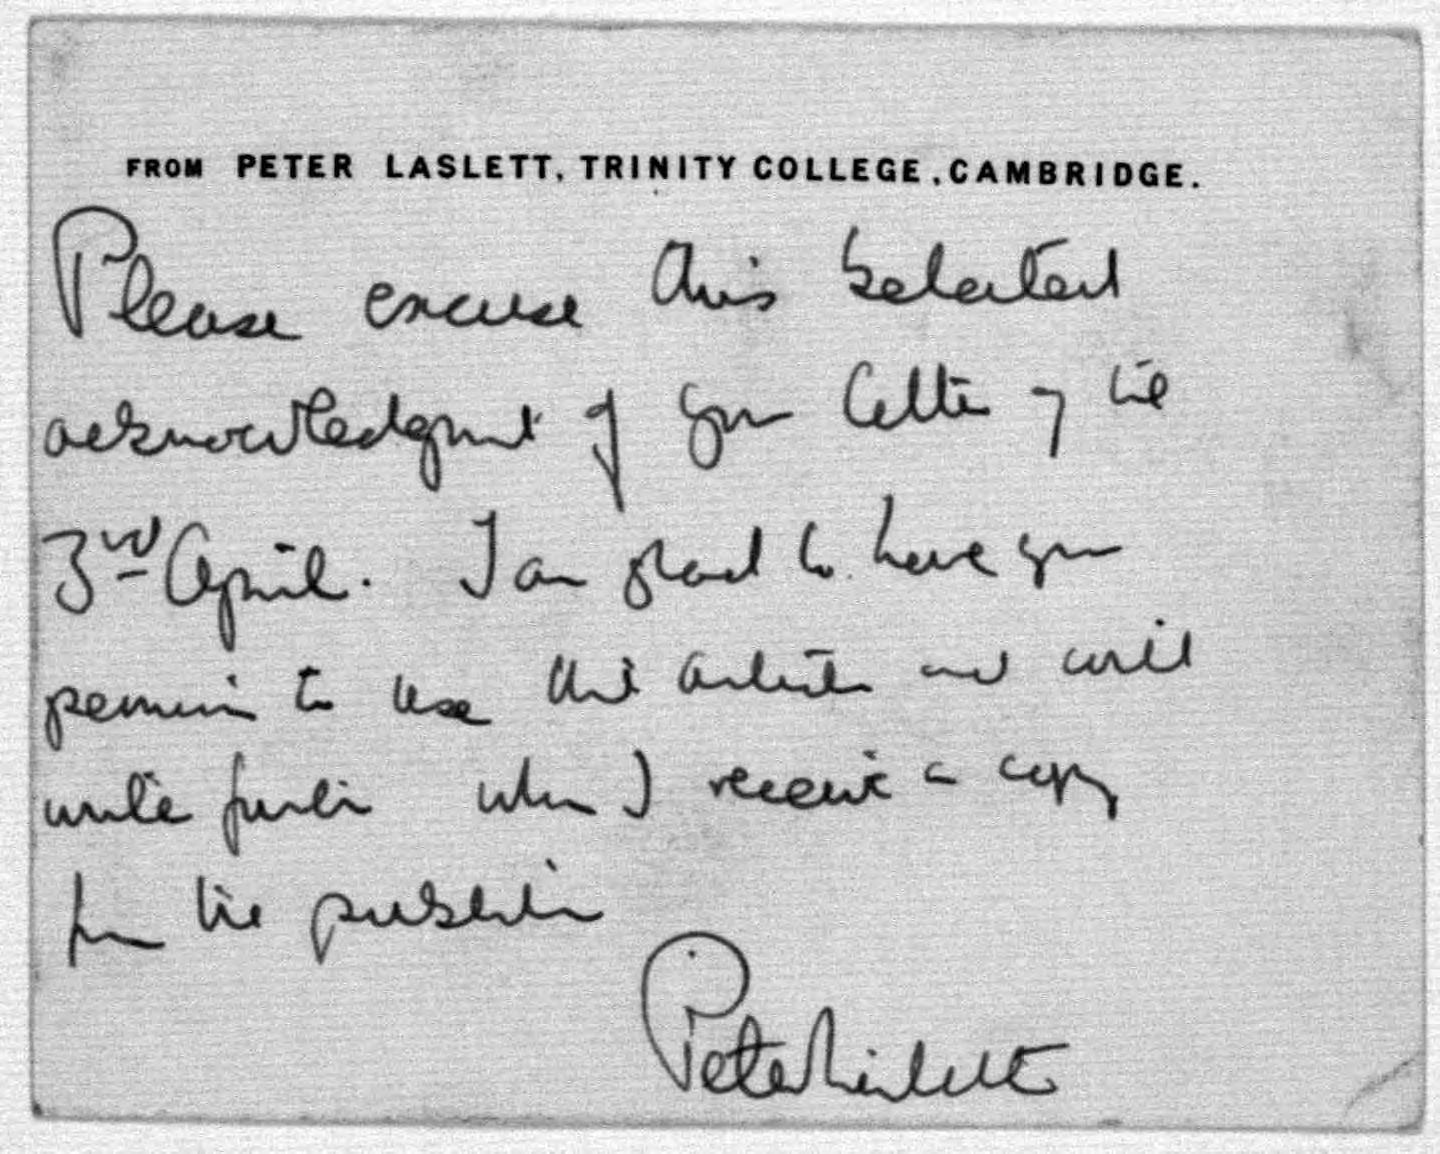 FROM PETER LASLETT, TRINITY COLLEGE, CAMBRIDGE.
Please excuse this belated
acknowledgment of your letter of the
3rd April. I am glad to have your
permission to use the and will
write further when I receive a copy
from the publisher
Peter Laslett